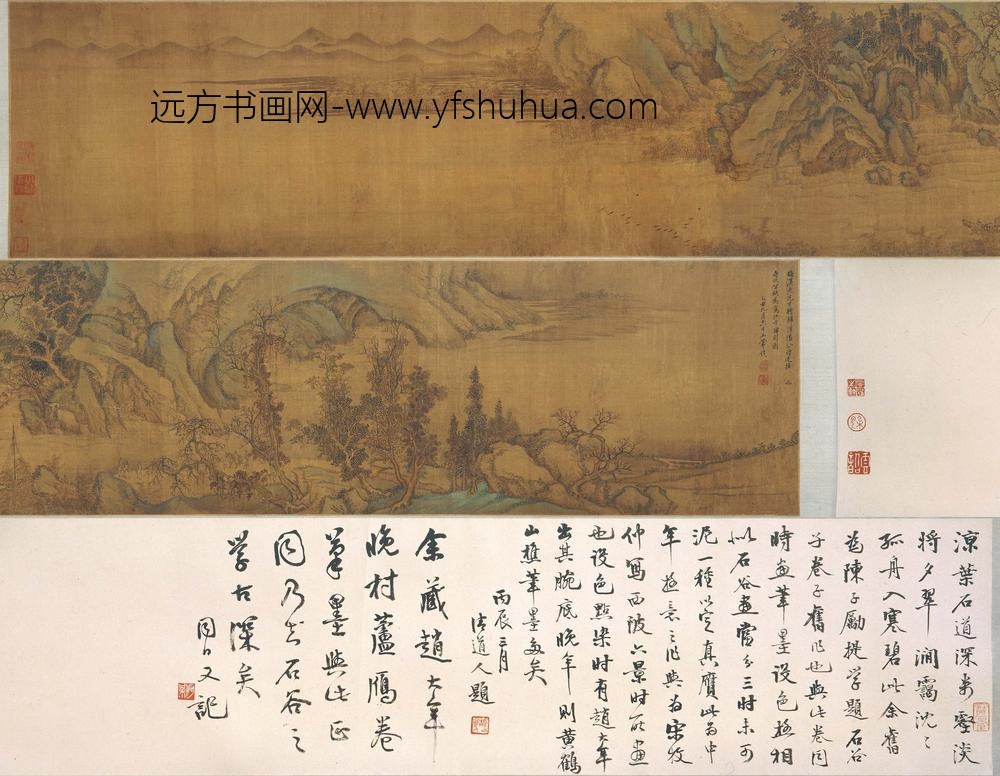 远方书画网-www.yfshuhua.com
涼葉石道深禾壑淡
將夕翠澗靄沈〻
孤舟入寒碧此余舊
為陳子勵提學題石谷
子卷子舊作也與此卷同
時畫筆墨設色極相
似石谷畫當分三時未可
泥一種以定真贗此為中
年極意之作與為宋牧
仲寫西陂六景時所畫
也設色點染時有趙大年
出其腕底晚年則黃鶴
山樵筆墨多矣
丙辰三月
道人題
余藏趙大年
晚村蘆雁卷
筆墨與此正
同乃知石谷之
學古深矣
同日又記